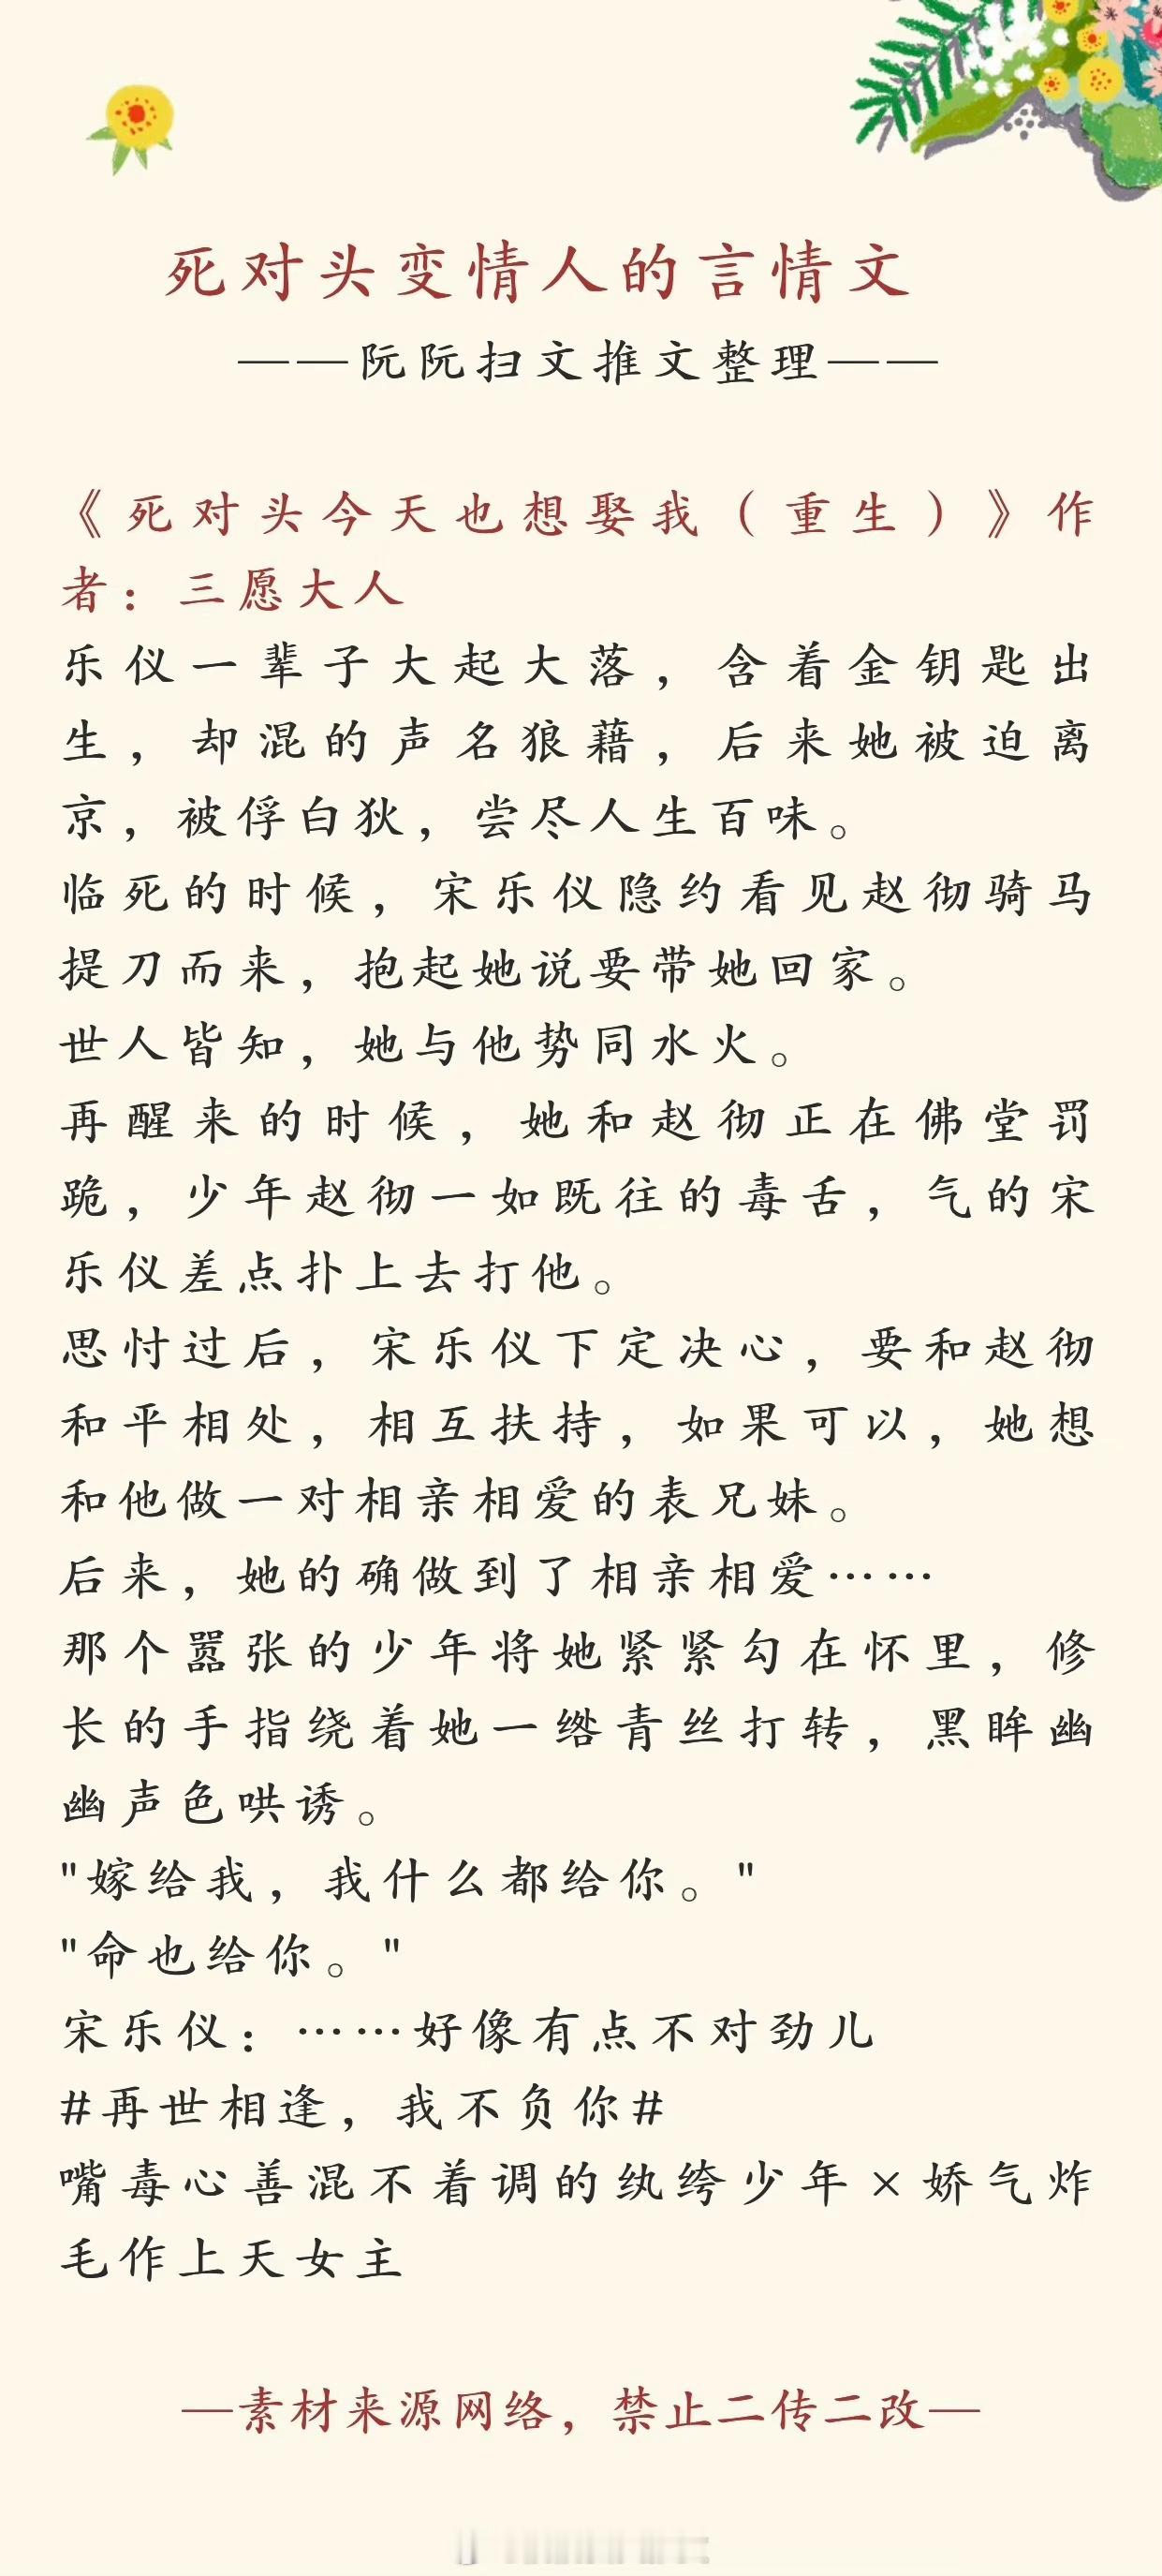 死对头变情人的言情文
——阮阮扫文推文整理——
《死对头今天也想娶我（重生）》作
者：三愿大人
乐仪一辈子大起大落，含着金钥匙出
生，却混的声名狼藉，后来她被迫离
京，被俘白狄，尝尽人生百味。
临死的时候，宋乐仪隐约看见赵彻骑马
提刀而来，抱起她说要带她回家。
世人皆知，她与他势同水火。
再醒来的时候，她和赵彻正在佛堂罚
跪，少年赵彻一如既往的毒舌，气的宋
乐仪差点扑上去打他。
思忖过后，宋乐仪下定决心，要和赵彻
和平相处，相互扶持，如果可以，她想
和他做一对相亲相爱的表兄妹。
后来，她的确做到了相亲相爱……
那个嚣张的少年将她紧紧勾在怀里，修
长的手指绕着她一绺青丝打转，黑眸幽
幽声色哄诱。
"嫁给我，我什么都给你。"
"命也给你。"
宋乐仪：……好像有点不对劲儿
#再世相逢，我不负你#
嘴毒心善混不着调的纨绔少年×娇气炸
毛作上天女主
—素材来源网络，禁止二传二改—